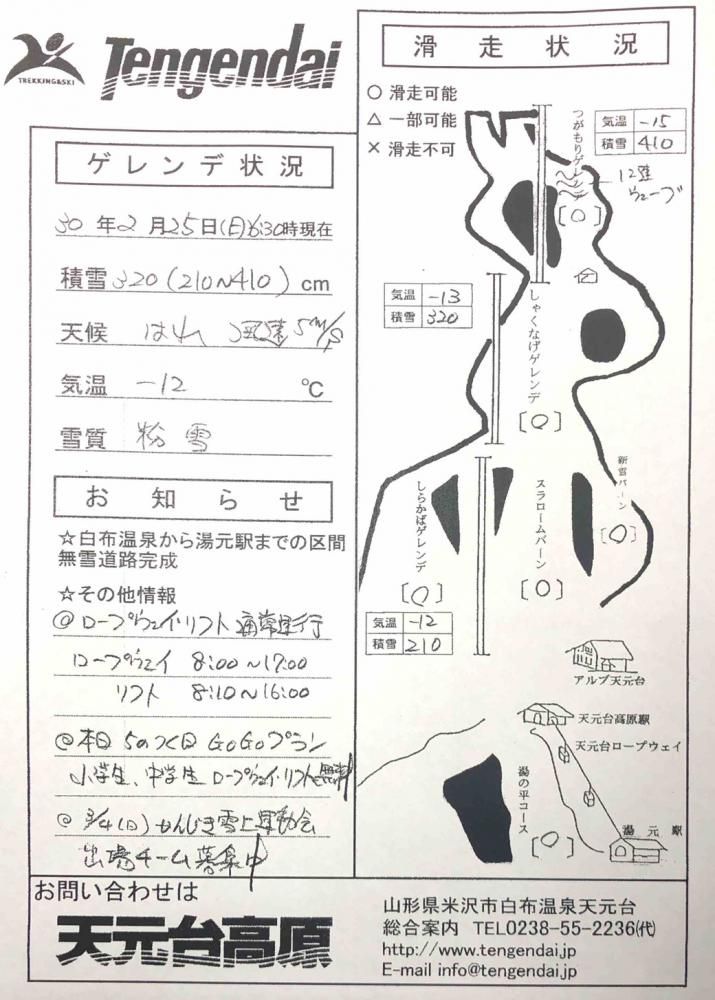 TREKKING&SKI
Tengendai
ゲレンデ状況
30年2月25日(日)6:30時現在
積雪 320(210~410)cm
天候 はれ 風速5m/s
気温 -12 ℃
雪質 粉雪
お知らせ
☆白布温泉から湯元駅までの区間
無雪道路完成
☆その他情報
@ロープウェイ・リフト通常運行
ロープウェイ 8:00~17:00
リフト 8:10~16:00
@本日 5のつく日 GoGoプラン
小学生、中学生 ロープウェイ・リフト無料
@3/4(日)かんじき雪上運動会
出場チーム募集中
滑走状況
○ 滑走可能
△ 一部可能
× 滑走不可
気温 -15
積雪 410
つがもりゲレンデ
[○]
12連
ウェーブ
気温 -13
積雪 320
しゃくなげゲレンデ
[○]
しらかばゲレンデ
[○]
スラロームバーン
[○]
新雪バーン
[○]
気温 -12
積雪 210
アルブ天元台
天元台高原駅
天元台ロープウェイ
湯の平コース
[○]
湯元駅
お問い合わせは
天元台高原
山形県米沢市白布温泉天元台
総合案内 TEL0238-55-2236㈹
http://www.tengendai.jp
E-mail info@tengendai.jp